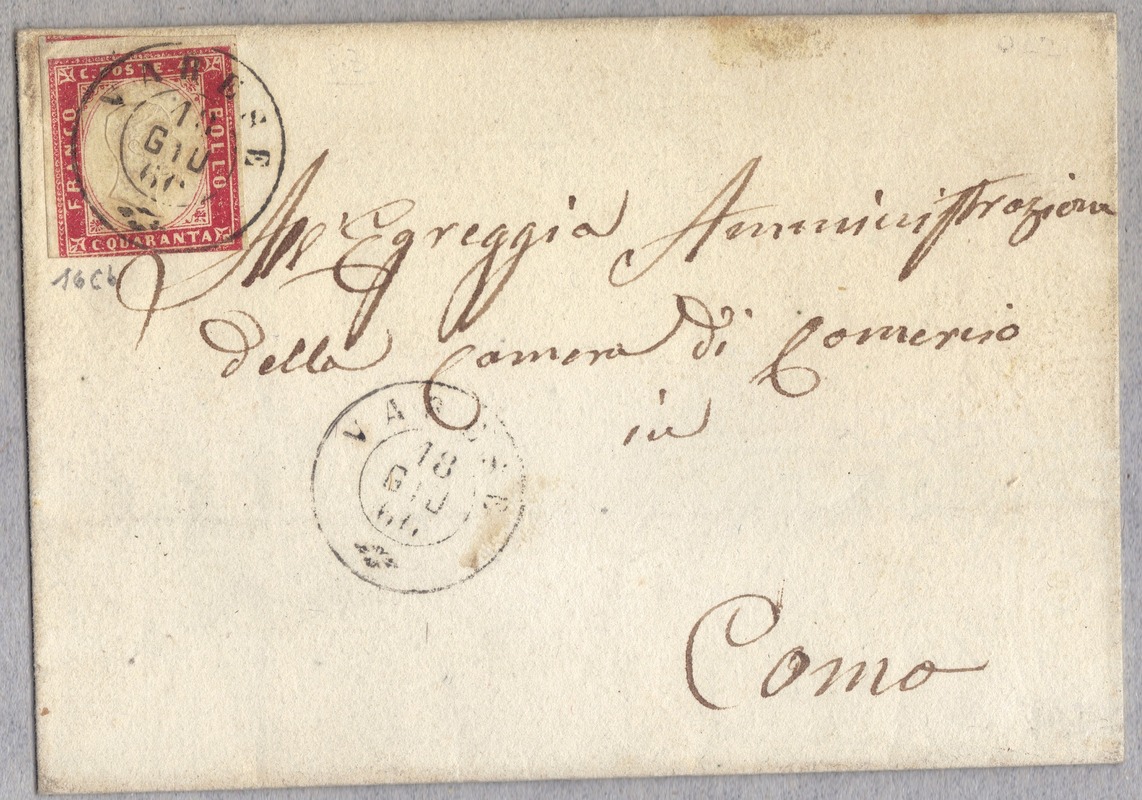 C. POSTE
FRANCO
BOLLO
C. QUARANTA
VARESE
18
GIU
60
16Cb
All'Egreggia Amministrazione
della Camera di Comercio
in
VARESE
18
GIU
60
Como